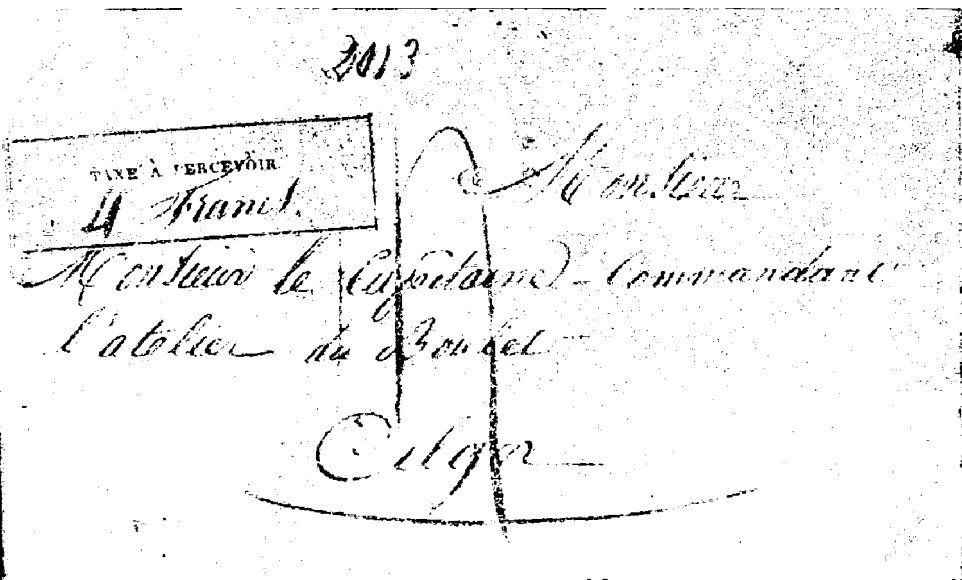 2013
TAXE À PERCEVOIR
4 Francs.
Monsieur
Monsieur le Capitaine - Commandant
l'atelier du Boulet
Alger